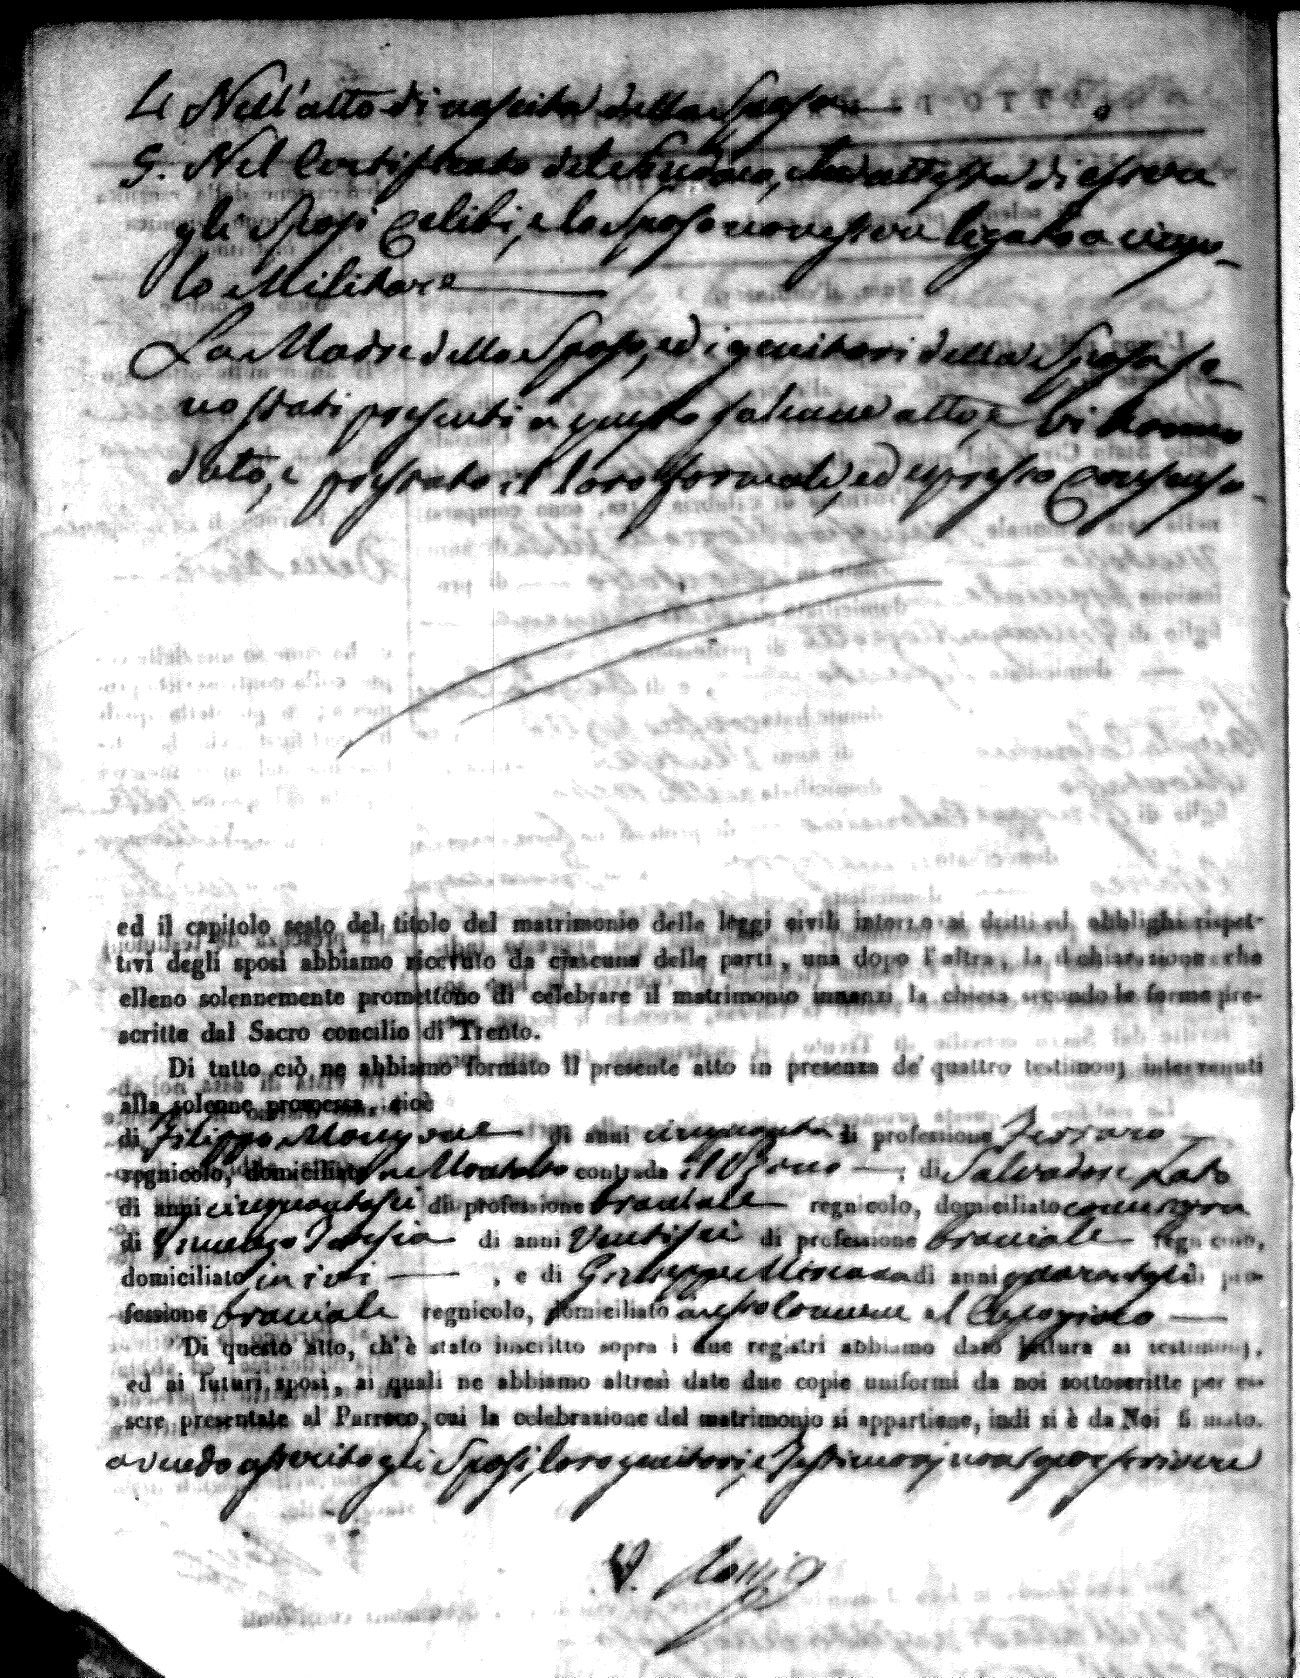 4. Nell'atto di nascita della Sposa
5. Nel Certificato del Sindaco, che attesta di essere
gli Sposi Celibi, e lo Sposo non essere ligato a vinco-
lo Militare
La Madre dello Sposo, ed i genitori della Sposa so-
no stati presenti a questo solenne atto, e vi hanno
dato, e prestato il loro formale, ed espresso Consenso.
ed il capitolo sesto del titolo del matrimonio delle leggi civili intorno ai dritti ed obblighi rispet-
tivi degli sposi abbiamo ricevuto da ciascuna delle parti, una dopo l'altra, la dichiarazione che
elleno solennemente promettono di celebrare il matrimonio innanzi la chiesa secondo le forme pre-
scritte dal Sacro concilio di Trento.
Di tutto ciò ne abbiamo formato il presente atto in presenza de' quattro testimonj intervenuti
alla solenne promessa, cioè
di Filippo di anni cinquanta di professione Ferraro
regnicolo, domiciliato in contrada ; di Salvadore Lato
di anni cinquantasei di professione braciale regnicolo, domiciliato come sopra
di Vincenzo di anni Ventisei di professione braciale regnicolo,
domiciliato in ivi , e di Giuseppe di anni di pro-
fessione braciale regnicolo, domiciliato in esso Comune al
Di questo atto, ch'è stato inscritto sopra i due registri abbiamo dato lettura ai testimonj,
ed ai futuri sposi, ai quali ne abbiamo altresì date due copie uniformi da noi sottoscritte per es-
sere presentate al Parroco, cui la celebrazione del matrimonio si appartiene, indi si è da Noi firmato.
avendo asserito gli Sposi, loro genitori, e Testimonj non saper scrivere